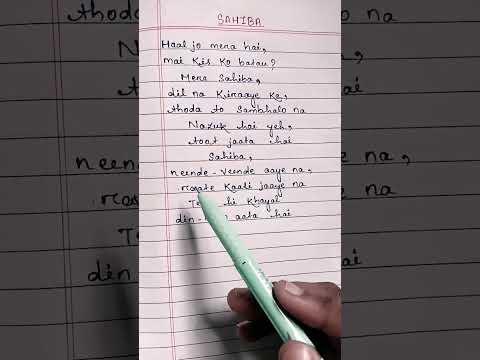 SAHIBA
Haal jo mera hai,
mai kis ko batau?
Mere Sahiba,
dil na kiraaye ke,
thoda to sambhalo na
Nazuk hai yeh,
toot jaata hai
Sahiba,
neende-veende aaye na,
raate kaali jaaye na
hi khayal
din- aata hai